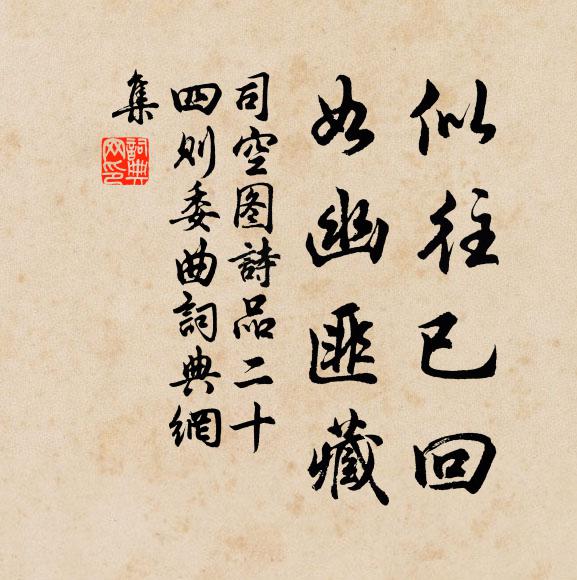 似往已回
如幽匪藏
司空图詩品二十
四则委曲詞典網
集
詞典
网印